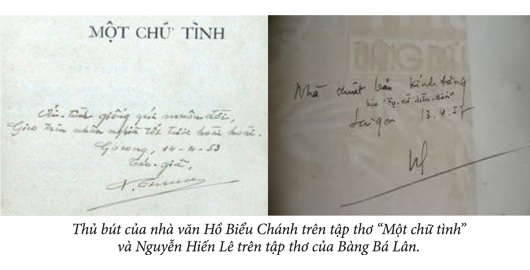 MỘT CHỮ TÌNH
giống quí muôn đời,
Gieo trên nhân nghĩa tốt tươi hoài hoài.
Gocong, 14-4-53
Tác-giả,
Nhà xuất bản kính tặng
Saigon 13.4.57
Thủ bút của nhà văn Hồ Biểu Chánh trên tập thơ “Một chữ tình”
và Nguyễn Hiến Lê trên tập thơ của Bàng Bá Lân.